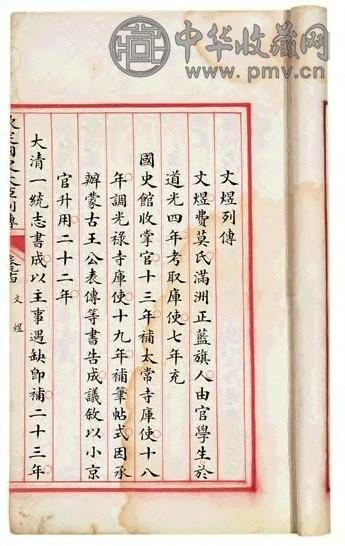 中华收藏网
www.pmv.cn
文煜列傳
文煜費莫氏滿洲正藍旗人由官學生於
道光四年考取庫使七年充
國史館收掌官十三年補太常寺庫使十八
年調光祿寺庫使十九年補筆帖式因承
辦蒙古王公表傳等書告成議敘以小京
官升用二十二年
大清一統志書成以主事遇缺即補二十三年
文煜